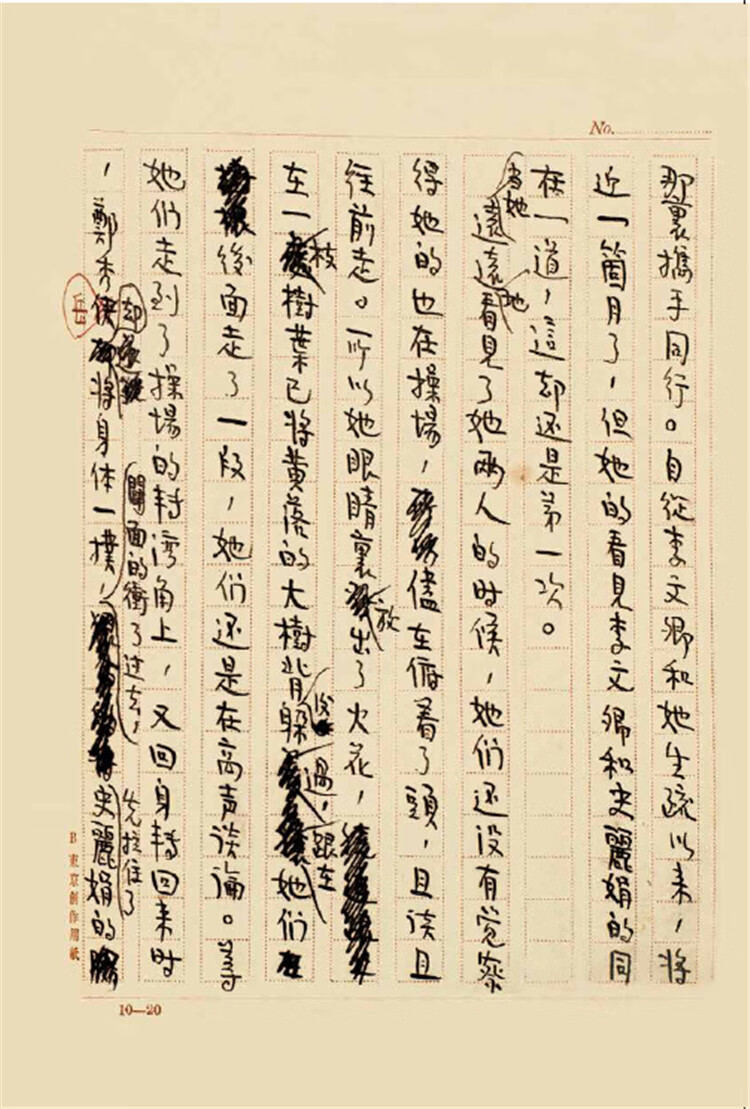 No.
那裏攜手同行。自從李文卿和她生疏以来,將
近一箇月了,但她的看見李文卿和史麗娟的同
在一道,這却还是第一次。
当她遠遠地看見了她兩人的时候,她们还没有觉察
得她的也在操場,儘在俯着了頭,且谈且
往前走。所以她眼睛裏放出了火花,
在一枝樹葉已將黄落的大樹背後躲過,跟在她们
後面走了一段,她们还是在高声谈論。等
她们走到了操場的轉湾角上,又回身轉回来时
,鄭秀岳却將身体一撲,闘面的衝了过去,先拉住了史麗娟的
B 東京創作用紙
10—20